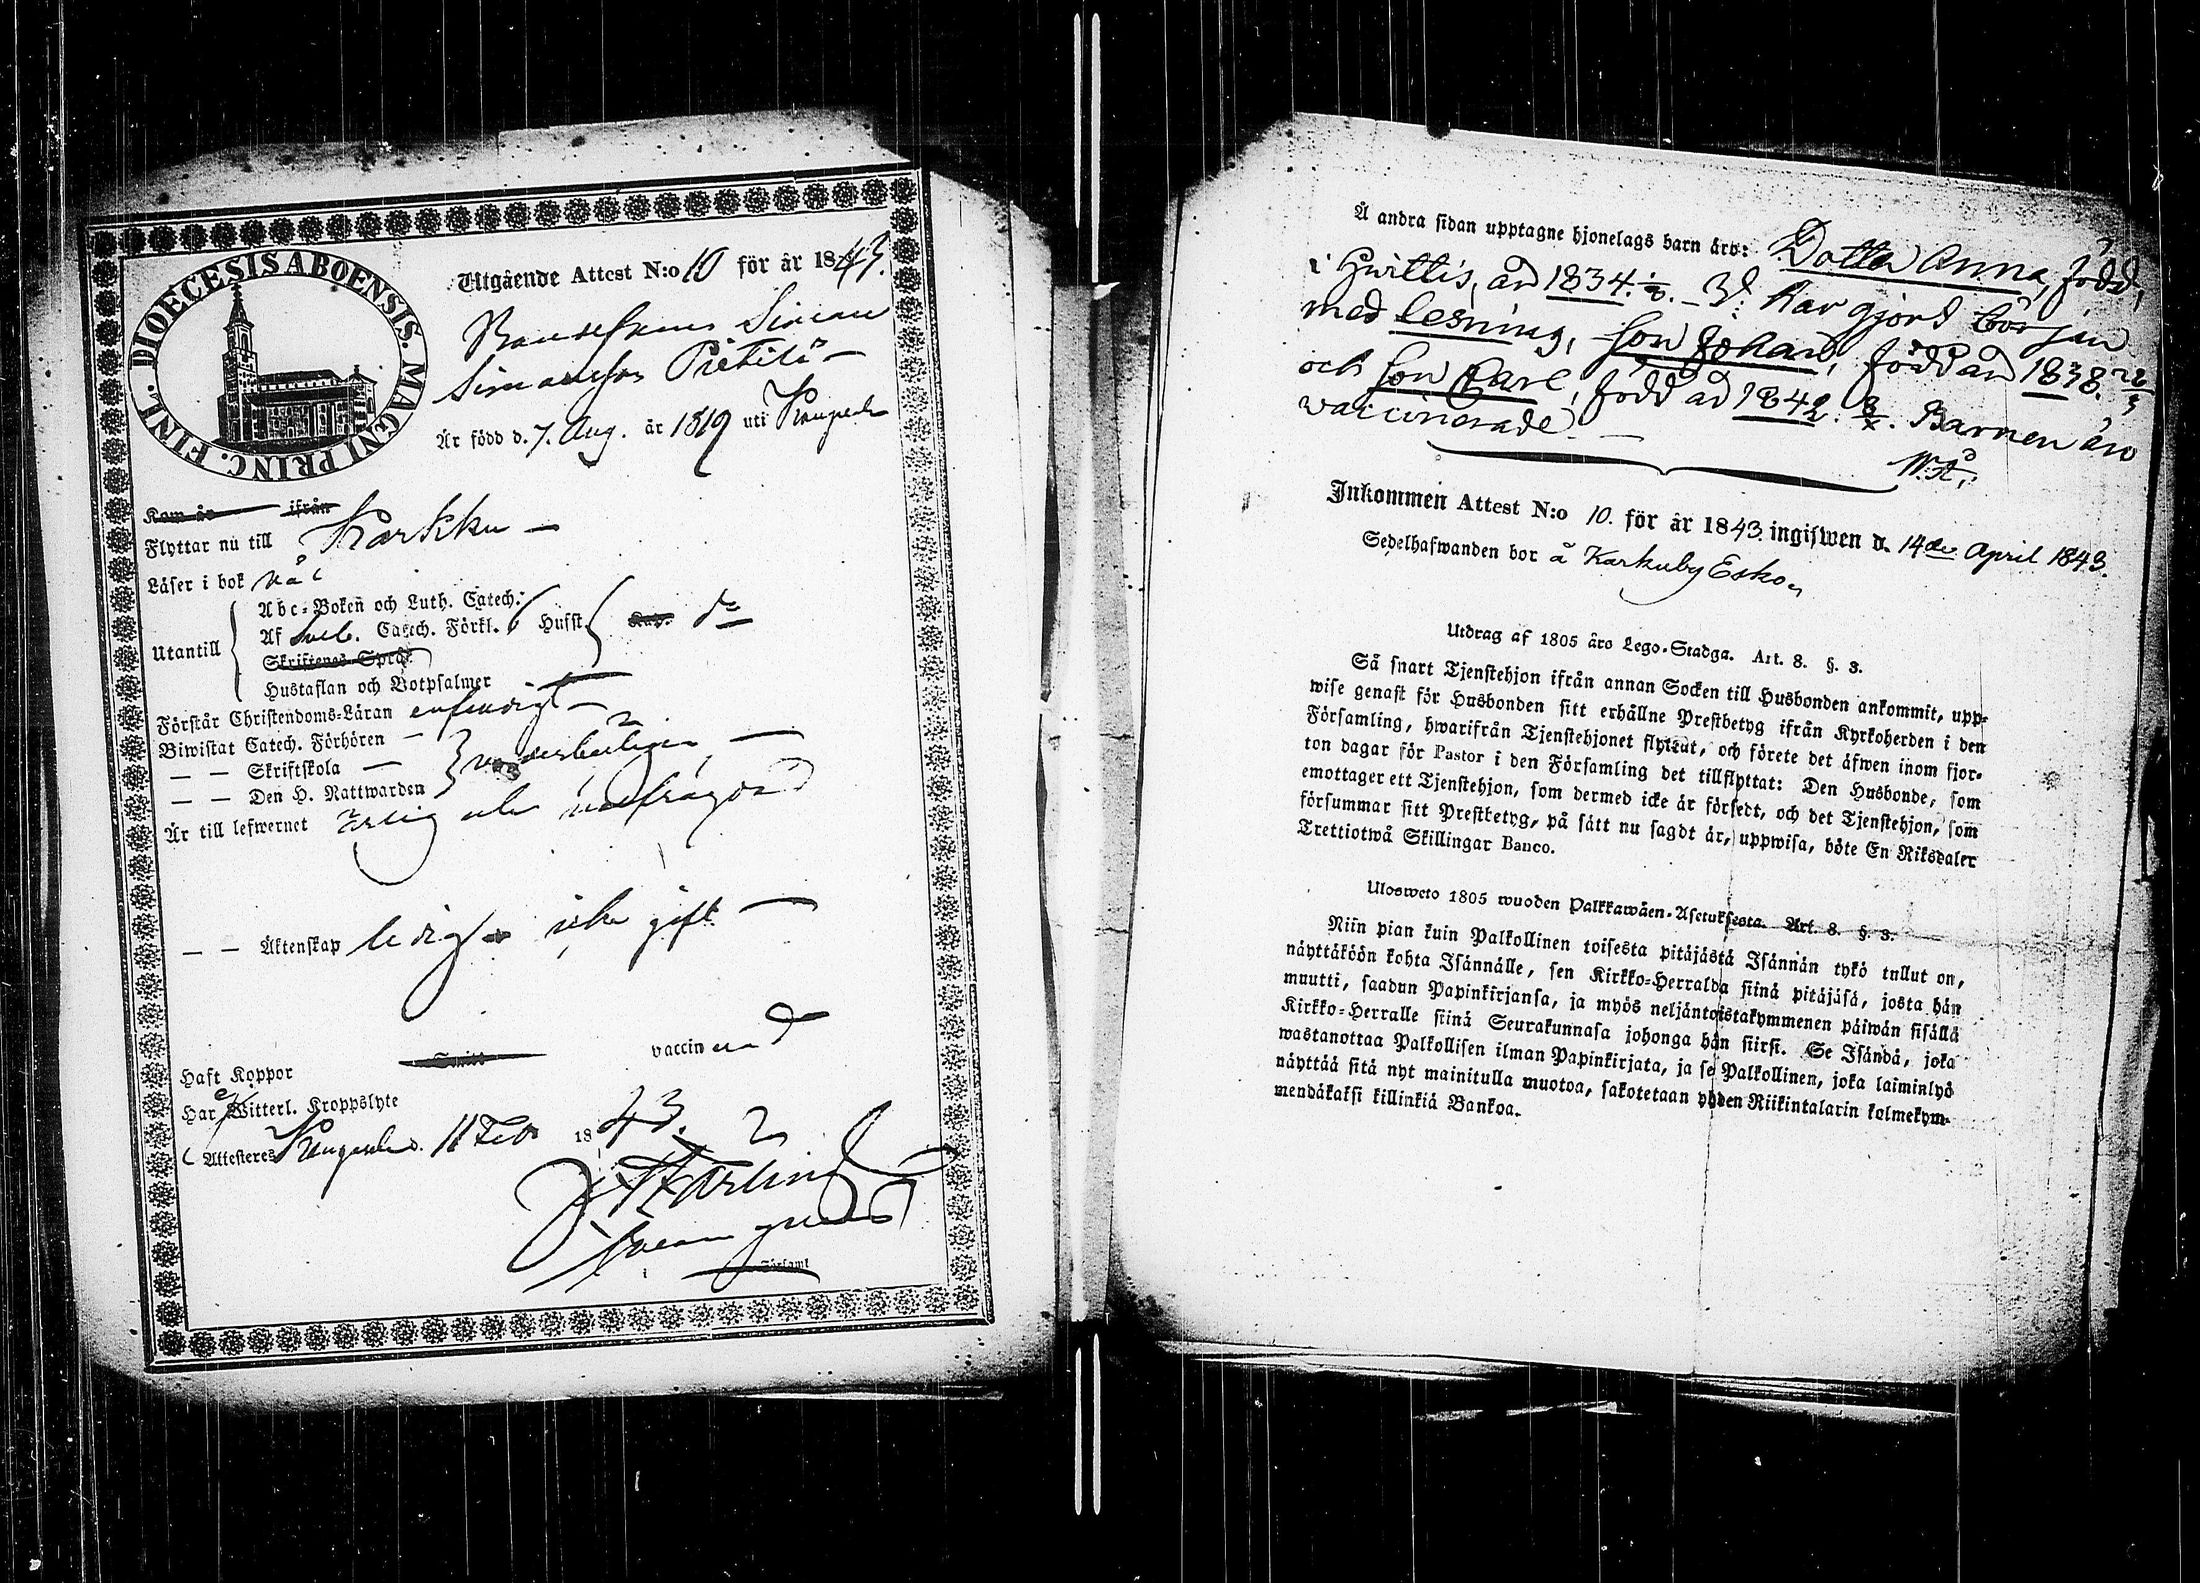 DIOECESIS ABOENSIS. MAGNI PRINC. FINL.
Utgående Attest N:o 10 för år 1843.
Simon
Simonsson
Är född d. 7. Aug. år 1819 uti
Kom år ifrån
Flyttar nu till Karkku —
Läser i bok
Abc-Boken och Luth. Catech.
Utantill Af Sveb. Catech. Förkl. Husst.
Skriftenes Språk
Hustaflan och Botpsalmer
Förstår Christendoms-Läran
Biwistat Catech. Förhören —
— — Skriftskola —
— — Den H. Nattwarden
Är till lefwernet ärlig och
— — Äktenskap ledig icke gift —
vaccinerad
Haft Koppor
Har Witterl. Kroppslyte
Attesteres d. 11 Feb 1843.
i Församl
Å andra sidan upptagne hjonelags barn äro: Dotter Anna, född,
i Hvittis, år 1834. har gjord början
med lesning, son Johan, född år 1838. 22/3
och son Carl, född år 1842. Barnen äro
vaccinerade. —
Inkommen Attest N:o 10. för år 1843. ingiswen d. 14de April 1843.
Sedelhafwanden bor å Karkuby Esko
Utdrag af 1805 åro Lego-Stadga. Art. 8. §. 3.
Så snart Tjenstehjon ifrån annan Socken till Husbonden ankommit, upp-
wise genast för Husbonden sitt erhållne Prestbetyg ifrån Kyrkoherden i den
Församling, hwarifrån Tjenstehjonet flyttat, och förete det äfwen inom fjor-
ton dagar för Pastor i den Församling det tillflyttat: Den Husbonde, som
emottager ett Tjenstehjon, som dermed icke är försedt, och det Tjenstehjon, som
försummar sitt Prestbetyg, på sätt nu sagdt är, uppwisa, böte En Riksdaler
Trettiotwå Skillingar Banco.
Ulosweto 1805 wuoden Palkkawäen-Asetuksesta. Art. 8. §. 3.
Niin pian kuin Palkollinen toisesta pitäjästä Isännän tykö tullut on,
näyttäköön kohta Isännälle, sen Kirkko-Herralda siinä pitäjäsä, josta hän
muutti, saadun Papinkirjansa, ja myös neljäntoistakymmenen päiwän sisällä
Kirkko-Herralle siinä Seurakunnasa johonga hän siirsi. Se Isändä, joka
wastanottaa Palkollisen ilman Papinkirjata, ja se Palkollinen, joka laiminlyö
näyttää sitä nyt mainitulla muotoa, sakotetaan yhden Riikintalarin kolmekym-
mendäkaksi killinkiä Bankoa.